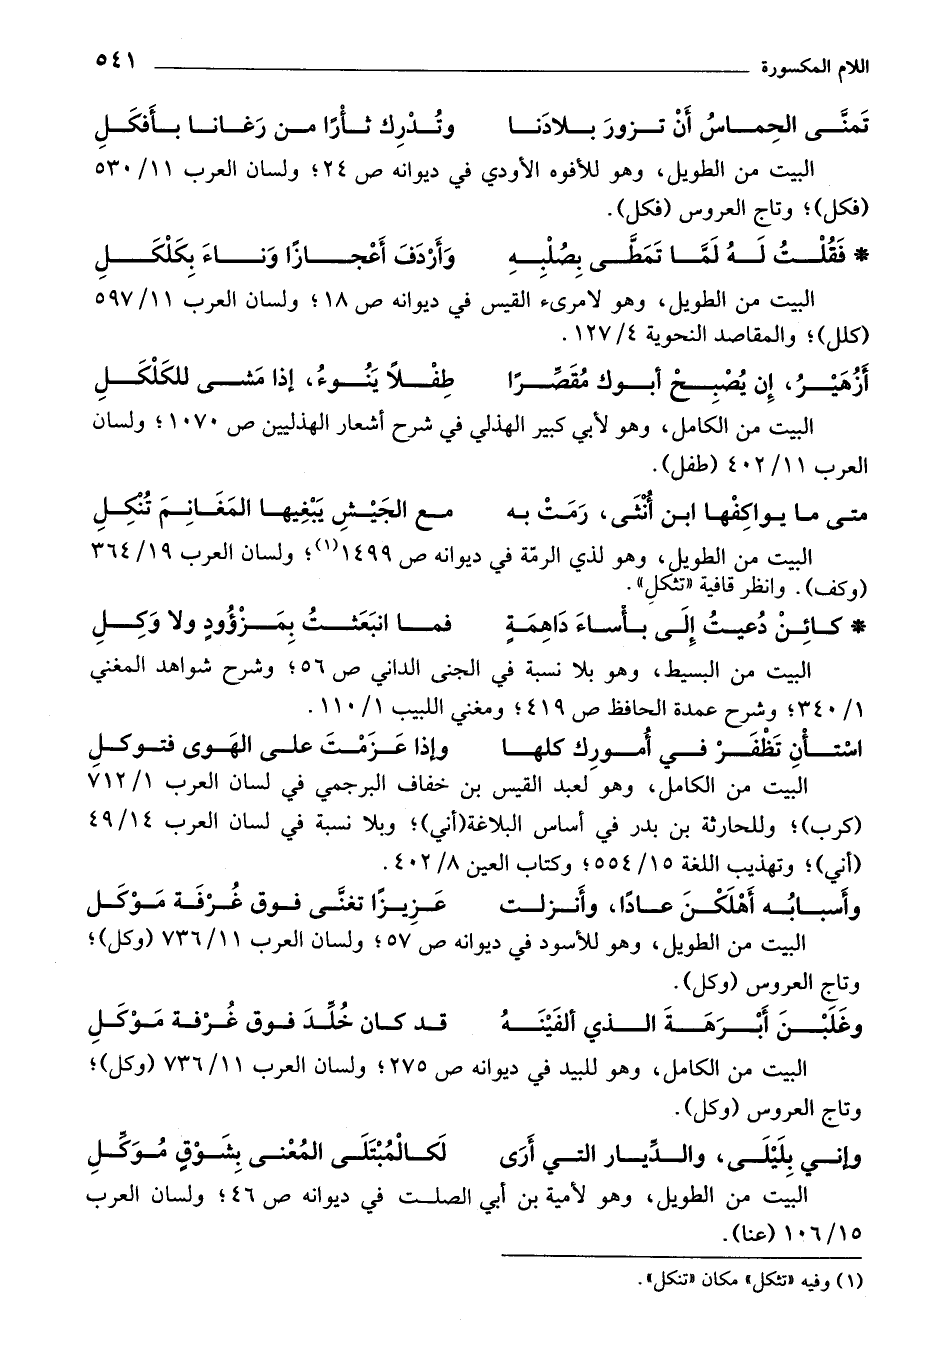 اللام المكسورة ٥٤١
تَمنَّى الحِماسُ أَنْ تزورَ بلادَنا وتُدْرِك ثأْرًا من رَغانا بأَفكَلِ
البيت من الطويل، وهو للأفوه الأودي في ديوانه ص ٢٤؛ ولسان العرب ١١/ ٥٣٠
(فكل)؛ وتاج العروس (فكل).
* فَقُلْتُ لَهُ لَمَّا تَمَطَّى بِصُلْبِهِ وَأَرْدَفَ أَعْجازًا وَناءَ بِكَلْكَلِ
البيت من الطويل، وهو لامرىء القيس في ديوانه ص ١٨؛ ولسان العرب ١١/ ٥٩٧
(كلل)؛ والمقاصد النحوية ٤/ ١٢٧.
أَزُهَيْرُ، إن يُصْبِحْ أبوك مُقَصِّرًا طِفْلاً يَنُوءُ، إذا مَشى للكَلْكَلِ
البيت من الكامل، وهو لأبي كبير الهذلي في شرح أشعار الهذليين ص ١٠٧٠؛ ولسان
العرب ١١/ ٤٠٢ (طفل).
متى ما يواكِفْها ابن أُنْثَى، رَمَتْ به مع الجَيْشِ يَبْغيها المَغَانِمَ تُنْكِلِ
البيت من الطويل، وهو لذي الرمّة في ديوانه ص ١٤٩٩(١)؛ ولسان العرب ١٩/ ٣٦٤
(وكف). وانظر قافية «تثكل».
* كائِنْ دُعيتُ إلَى بأْساءَ دَاهِمَةٍ فما انبَعَثتُ بِمَزْؤُودٍ ولا وَكِلِ
البيت من البسيط، وهو بلا نسبة في الجنى الداني ص ٥٦؛ وشرح شواهد المغني
١/ ٣٤٠؛ وشرح عمدة الحافظ ص ٤١٩؛ ومغني اللبيب ١/ ١١٠.
اسْتأْنِ تَظْفَرْ في أُمورِك كلها وإذا عَزَمْتَ على الهَوى فتوكلِ
البيت من الكامل، وهو لعبد القيس بن خفاف البرجمي في لسان العرب ١/ ٧١٢
(كرب)؛ وللحارثة بن بدر في أساس البلاغة(أني)؛ وبلا نسبة في لسان العرب ١٤/ ٤٩
(أني)؛ وتهذيب اللغة ١٥/ ٥٥٤؛ وكتاب العين ٨/ ٤٠٢.
وأَسبابُه أَهْلَكْنَ عادًا، وأَنزلت عَزيزًا تغنَّى فوق غُرْفَة مَوْكَلِ
البيت من الطويل، وهو للأسود في ديوانه ص ٥٧؛ ولسان العرب ١١/ ٧٣٦ (وكل)؛
وتاج العروس (وكل).
وغَلَبْنَ أَبْرَهَةَ الذي ألفَيْنَهُ قد كان خُلِّدَ فوق غُرْفة مَوْكَلِ
البيت من الكامل، وهو للبيد في ديوانه ص ٢٧٥؛ ولسان العرب ١١/ ٧٣٦ (وكل)؛
وتاج العروس (وكل).
وإني بِلَيْلَى، والدِّيار التي أَرَى لَكالْمُبْتَلَى المُعْنى بِشَوْقٍ مُوَكَّلِ
البيت من الطويل، وهو لأمية بن أبي الصلت في ديوانه ص ٤٦؛ ولسان العرب
١٥/ ١٠٦ (عنا).
(١) وفيه «تثكل» مكان «تنكل».